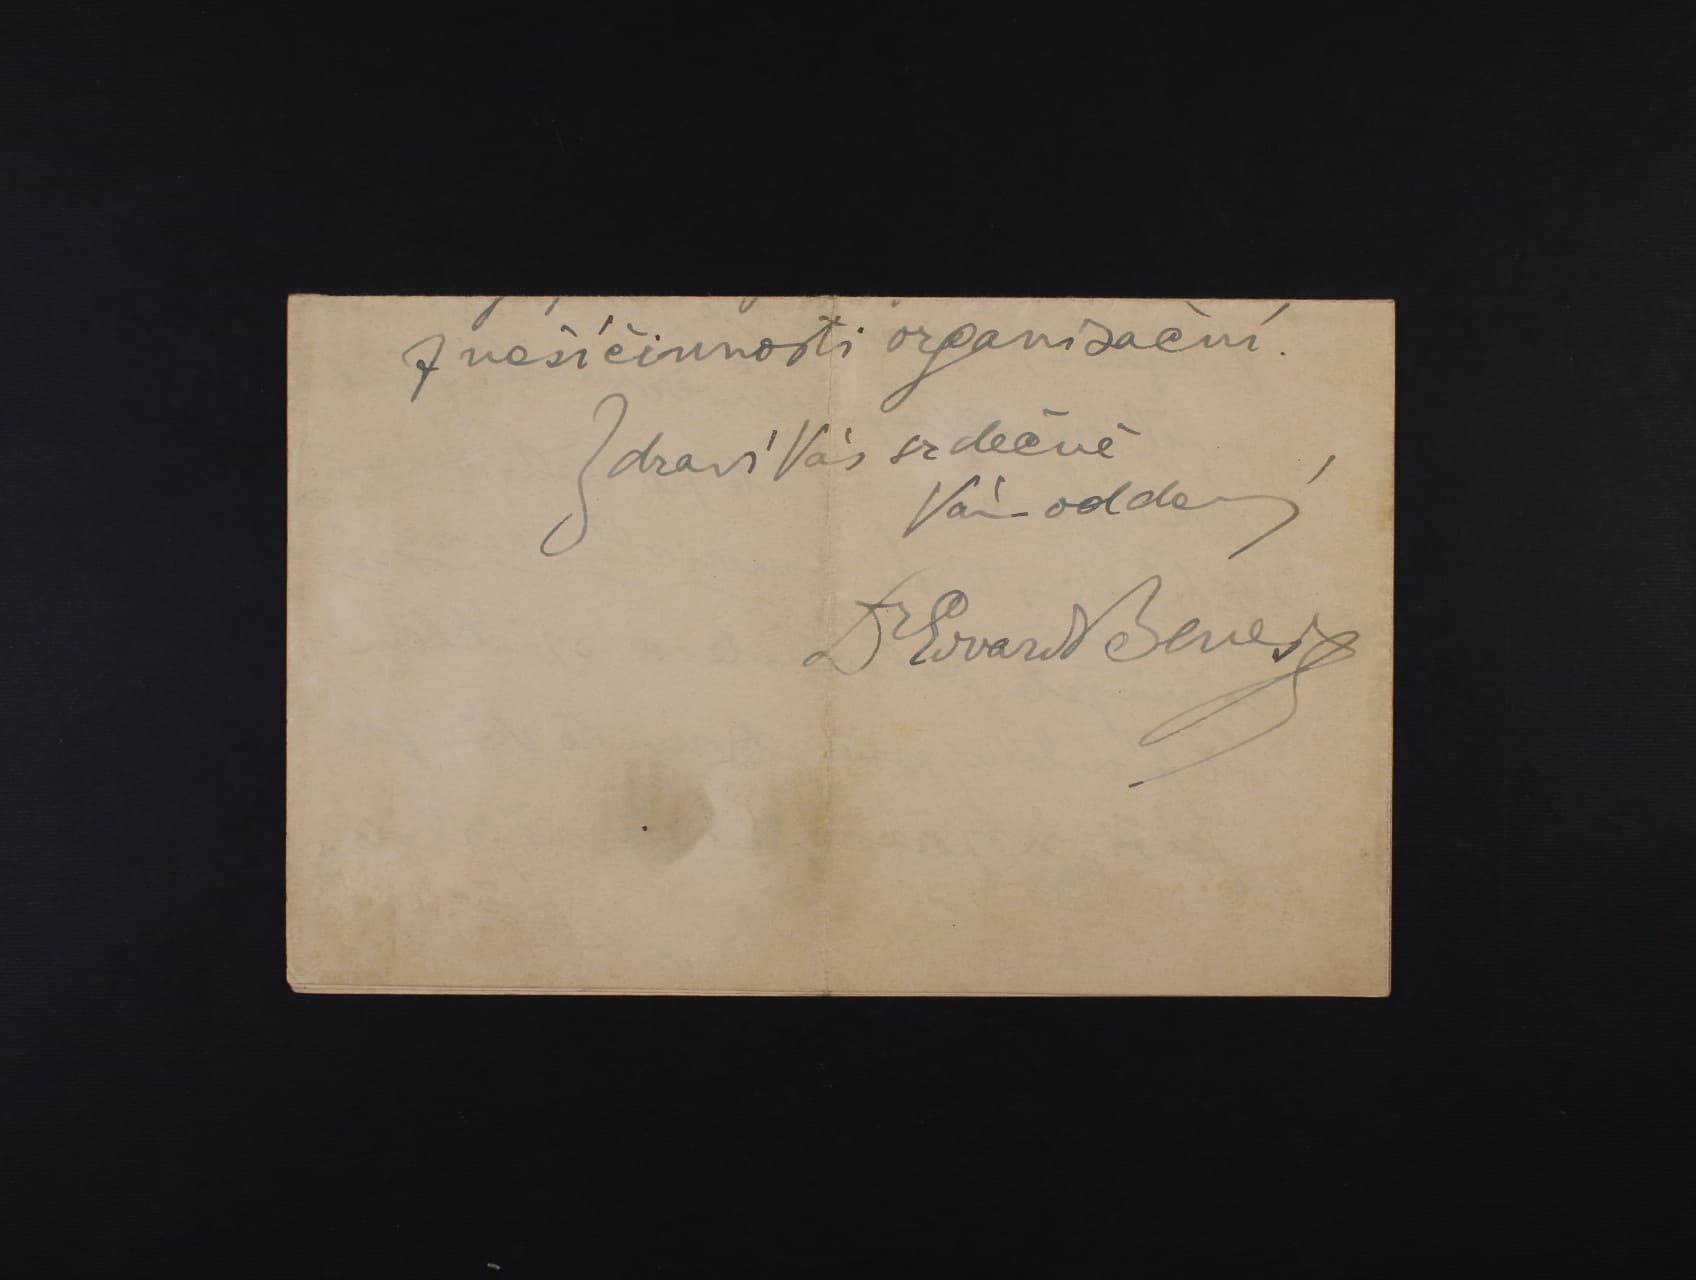 z naší činnosti organisační.
Zdraví Vás srdečně
Vám oddaný
Dr Edvard Beneš